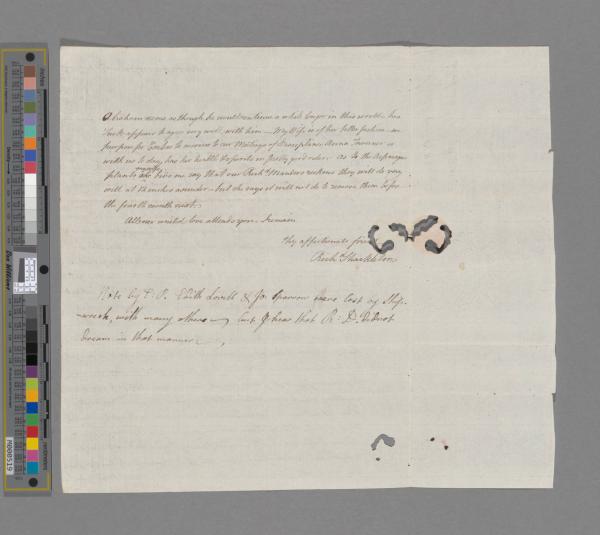 Abraham seems as though he would continue a while longer in this world – his
Trade appears to agree very well with him – My Wife is of her better fashion – on
purpose for to remove to our Meetings of Discipline. Anna is
with us to day, has her health & spirits in pretty good order. As to the Asparagus
plants Margt. bids me say that our Richd. Manders reckons they will do very
well at 12 inches asunder – but she says it will not do to remove them before
the fourth month next.
All our united love attends you. I remain
Thy affectionate friend
Richd. Shackleton
Note by Edith Lovell & Jos. Sparrow were lost by Ship-
-wreck, with many others – but I hear that R: D. Did not
Dream in that manner
Inches
Centimetres
Density
M000519